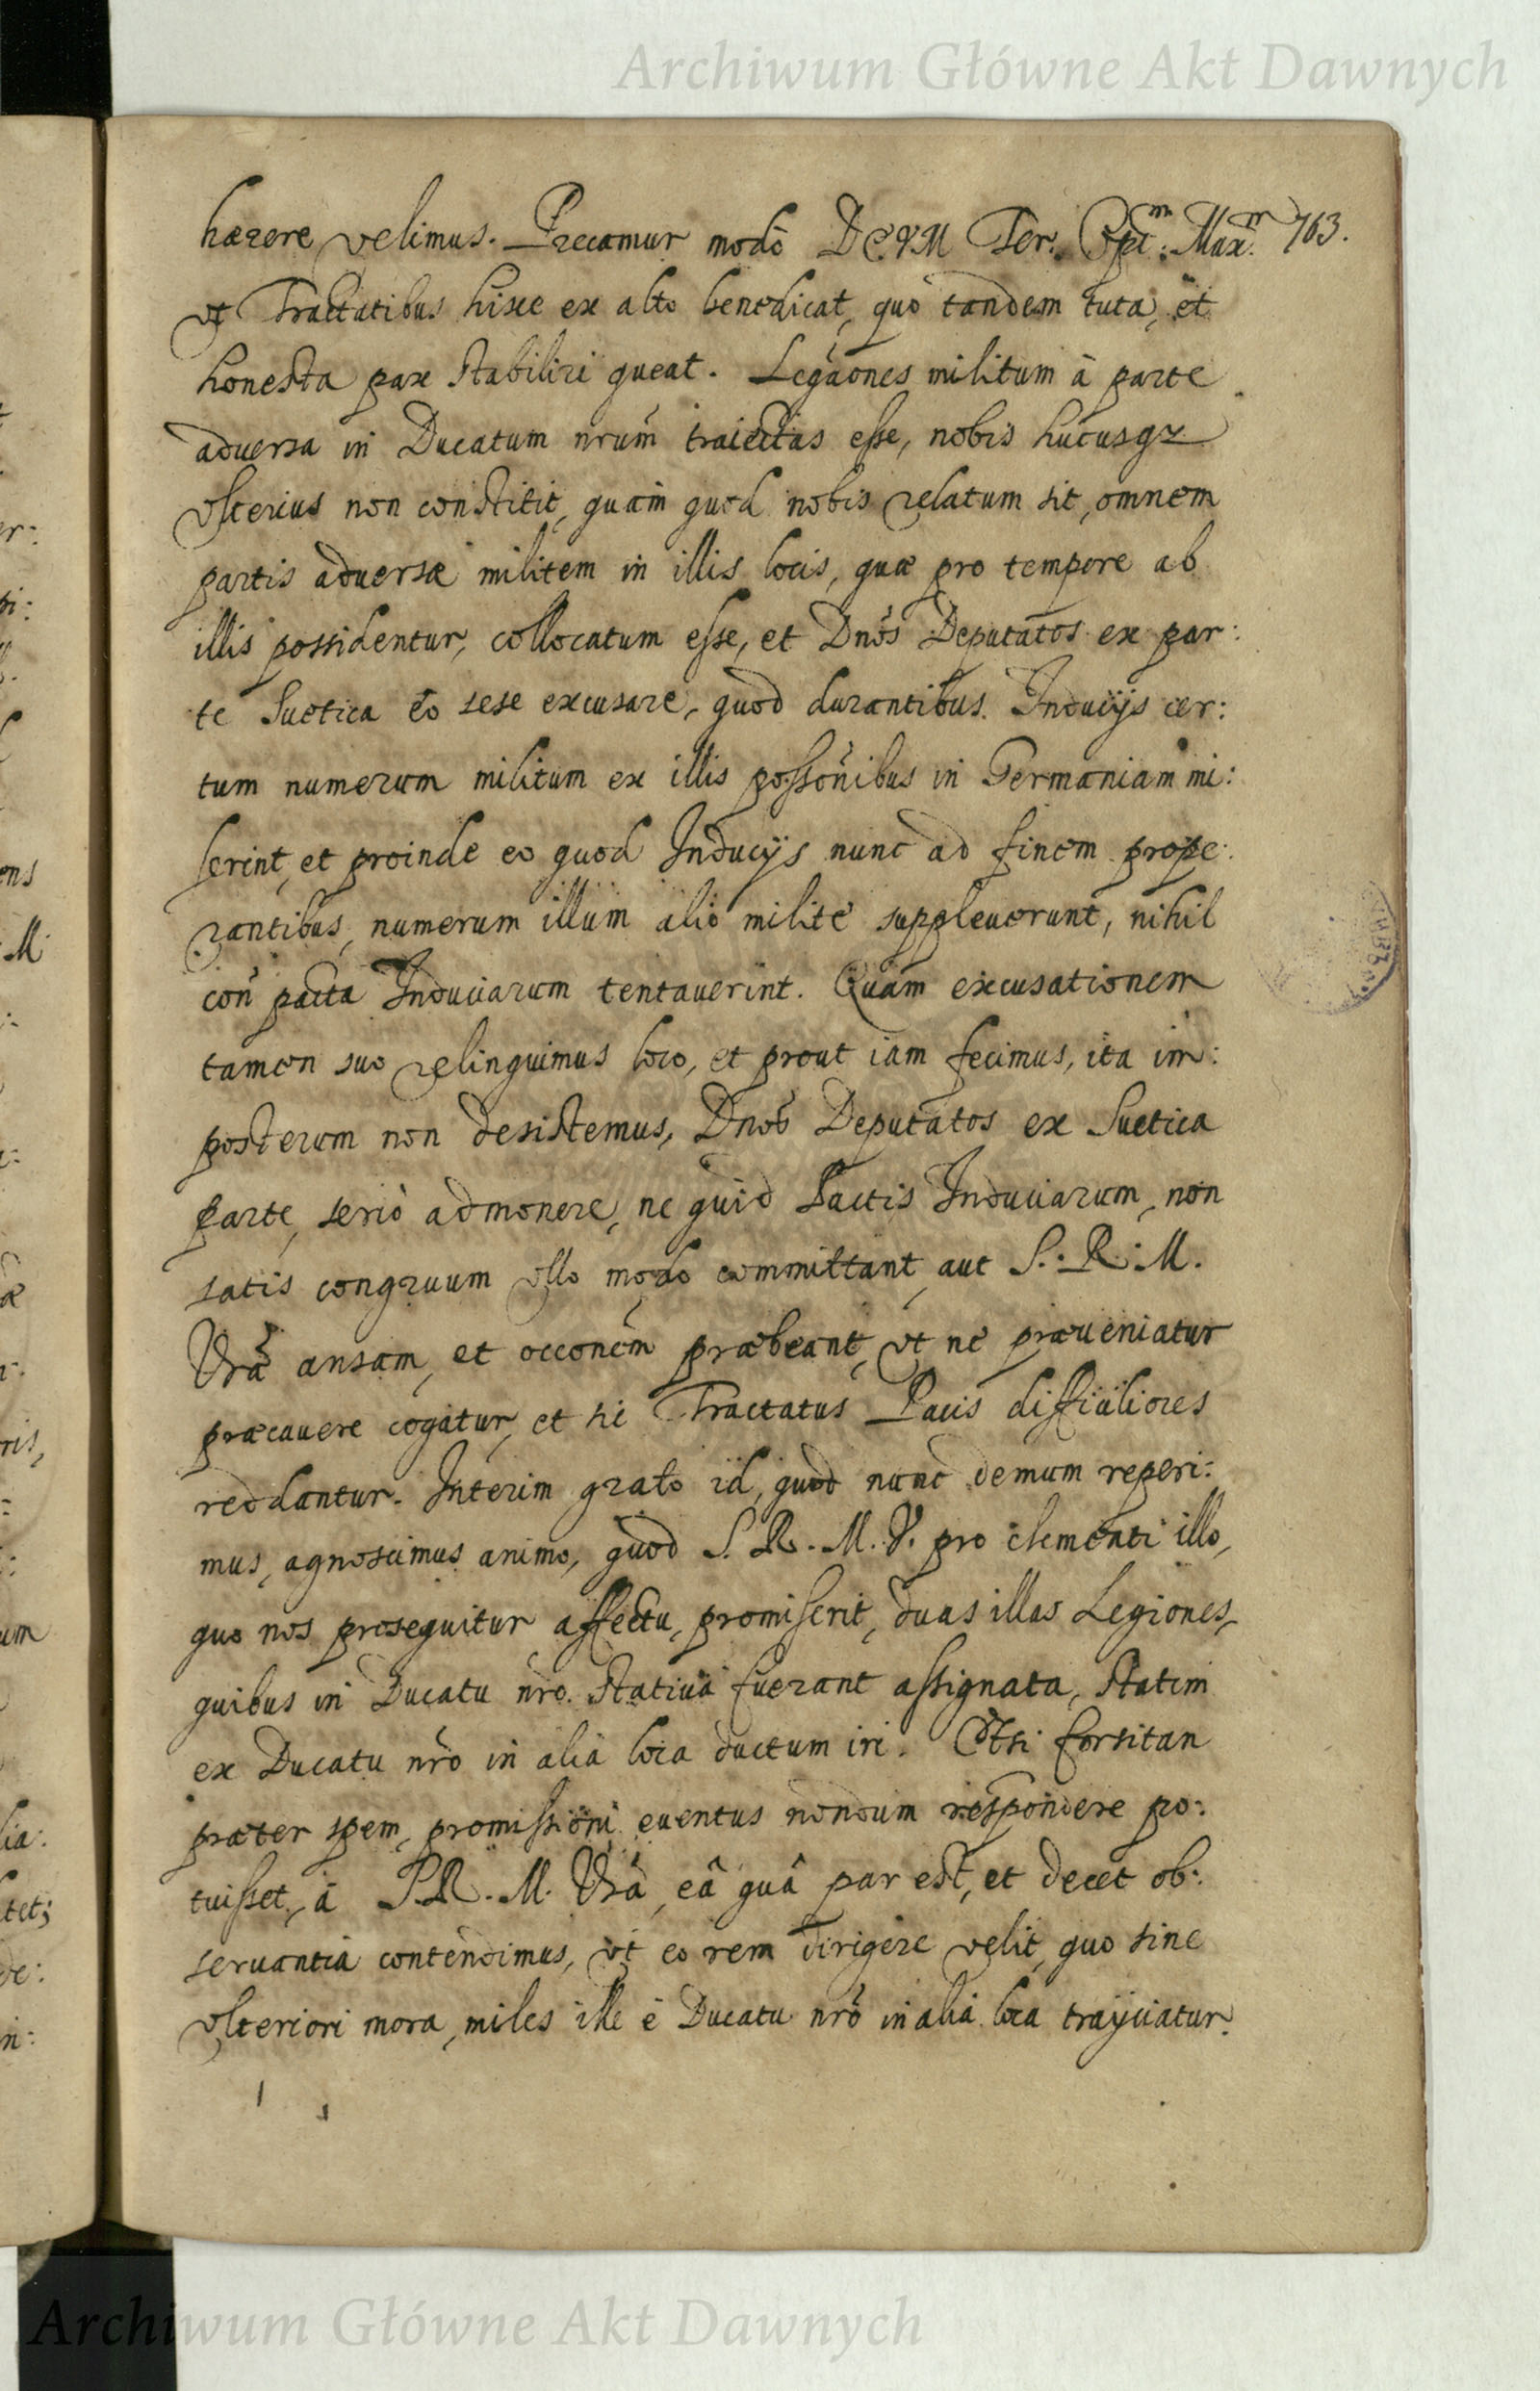 Archiwum Główne Akt Dawnych
hærere velimus. Precamur modò DEVM Ter. Optm: Maxm. 763.
vt Tractatibus hisce ex alto benedicat, quò tandem tuta, et
honesta pax stabiliri queat. Legaones militum à parte
aduersa in Ducatum nrum traiectas esse, nobis hucusqz
vlterius non constitit, quam quod nobis relatum sit, omnem
partis aduersæ militem in illis locis, quæ pro tempore ab
illis possidentur, collocatum esse, et Dnos Deputatos ex par:
te Suetica eo sese excusare, quod durantibus Inducijs cer:
tum numerum militum ex illis possonibus in Germaniam mi:
serint, et proinde eo quod Inducijs nunc ad finem prope:
rantibus, numerum illum alio milite suppleuerunt, nihil
con pacta Induciarum tentauerint. Quam excusationem
tamen suo relinquimus loco, et prout iam fecimus, ita im:
posterum non desistemus, Dnos Deputatos ex Suetica
parte, seriò admonere, ne quid Pactis Induciarum, non
satis congruum vllo modo committant, aut S.: R.: M.
Vrã ansam, et occonem præbeant, vt ne præueniatur
præcauere cogatur, et hi Tractatus Pacis difficiliores
reddantur. Interim grato id, quod nunc demum reperi:
mus, agnoscimus animo, quod S. R. M. V. pro clementi illo,
quo nos prosequitur affectu, promiserit, duas illas Legiones,
quibus in Ducatu nro. statiua fuerant assignata, statim
ex Ducatu nro in alia loca ductum iri. Etsi forsitan
præter spem, promissioni euentus nondum respondere po:
tuisset, à S. R. M. Vrã, eâ quâ par est, et decet ob:
seruantia contendimus, vt eo rem dirigere velit, quo sine
vlteriori mora, miles ille è Ducatu nro in alia loca traijciatur.
Archiwum Główne Akt Dawnych